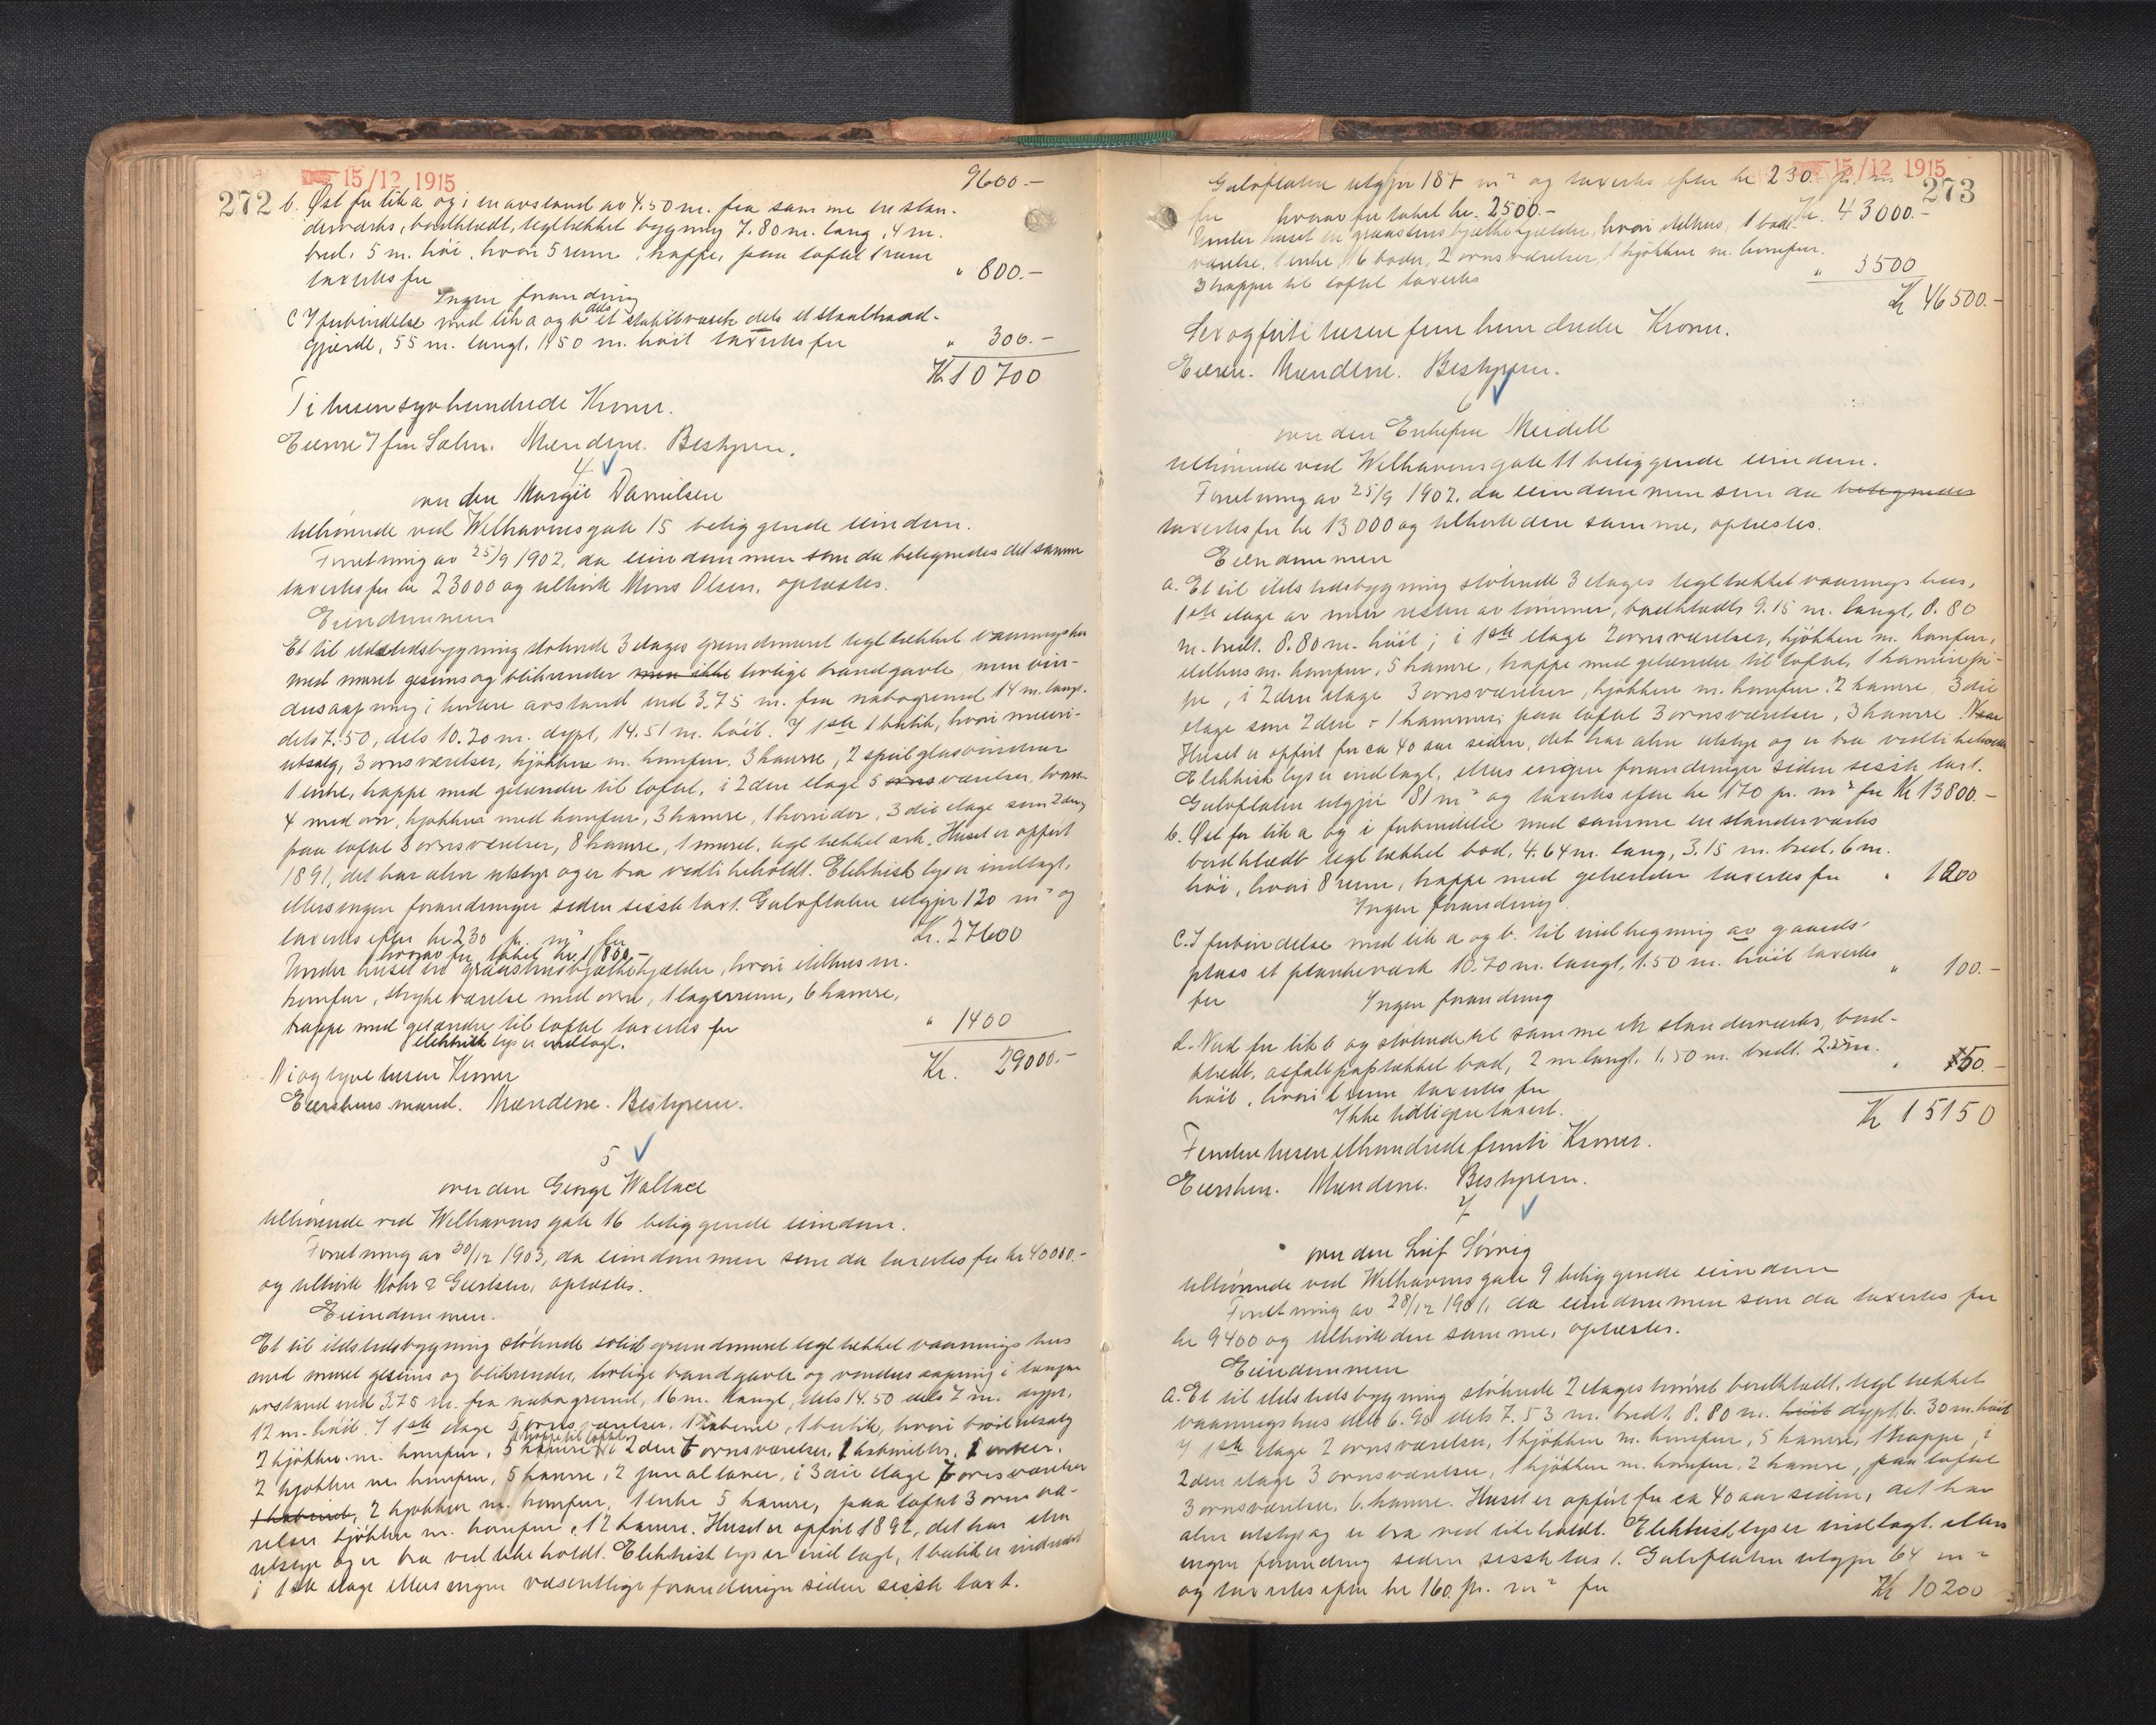 272
15/12 1915
9600.-
b. Øst for lit. a og i en avstand av 4.50 m. fra samme en stan-
derverks, bordklædt, tegltækket bygning 7.80 m. lang, 4 m.
bred, 5 m. høi, hvori 5 rum, trappe, paa loftet 1 rum
taxertes for " 800.-
Ingen forandring
C. I forbindelse med lit. a og b dels et stakitværk dels et staaltraad-
gjerde, 55 m. langt, 1.50 m. høit taxertes for " 300.-
Kr. 10700
Ti tusen syv hundrede Kroner.
Mændene. Bestyrer.
4
over den Margit Danielsen
tilhørende ved Welhavensgate 15 beliggende eiendom.
Forretning av 25/9 1902, da eiendommen som da betegnedes det samme
taxertes for kr 23000 og tilhørte Mons Olsen, oplæstes.
Eiendommen
Et til ildstedsbygning støtende 3 etages grundmuret tegltækket vaaningshus
med muret gesims og blikrender men ikke lovlige brandgavle, men vin-
dusaapning i kortere avstand end 3.75 m. fra nabogrund 14 m. langt,
dels 7.50, dels 10.20 m. dypt, 14.51 m. høit. I 1ste 1 butik, hvori
utsalg, 3 ovnsværelser, kjøkken m. komfur, 3 kamre, 2 speilglasvinduer
1 entre, trappe med gelænder til loftet, i 2den etage 5 ovns værelser, hvorav
4 med ovn, kjøkken med komfur, 3 kamre, 1 korridor, 3die etage som 2den,
paa loftet 3 ovnsværelser, 8 kamre, 1 muret, tegltækket ark. Huset er opført
1891, det har alm utstyr og er bra vedlikeholdt. Elektrisk lys er indlagt,
ellers ingen forandringer siden sidste taxt. Gulvflaten utgjør 120 m² og
taxertes efter kr 230 pr. m² for Kr. 27600
hvorav for taket kr. 1800.-
Under huset en graastensbjælkekjælder, hvori ildhus m.
komfur, strykeværelse med ovn, 1 lagerrum, 6 kamre,
trappe med gelænder til loftet taxertes for " 1400
elektrisk lys er indlagt.
Kr. 29000.-
Ni og tyve tusen Kroner
Eierskens mand. Mændene. Bestyreren.
5
over den George Wallace
tilhørende ved Welhavens gate 16 beliggende eiendom.
Forretning av 30/12 1903, da eiendommen som da taxertes for kr 40000.-
og tilhørte Mohr & Geertsen, oplæstes.
Eiendommen.
Et til ildstedsbygning støtende solid grundmuret tegltækket vaanings hus
med muret gesims og blikrender, lovlige brandgavle og vindus aapning i længre
avstand end 3.75 m. fra nabogrund, 16 m. langt, dels 14.50 dels 7 m. dypt,
12 m. høit. I 1ste etage 5 ovns værelser, 1 kabinet, 1 butik, hvori brødutsalg
1 trappe til loftet
2 kjøkken m. komfur, 5 kamre, i 2den 7 ovnsværelser,
2 kjøkken m. komfur, 5 kamre, i 3die etage 7 ovnsværelser
1 kabinet, 2 kjøkken m. komfur, 1 entre 5 kamre, paa loftet 3 ovns væ-
relser kjøkken m. komfur, 12 kamre. Huset er opført 1892, det har alm
utstyr og er bra ved like holdt. Elektrisk lys er ind lagt, 1 butik er indredet
i 1ste etage ellers ingen væsentlige forandringer siden sidste taxt.
15/12 1915
273
Gulvflaten utgjør 187 m² og taxertes efter kr 230 pr. m²
for Kr. 43000.-
hvorav for taket kr. 2500.-
Under huset en graastens bjælkekjælder, hvori ildhus, 1 bade-
værelse, 1 entre, 6 boder, 2 ovnsværelser, 1 kjøkken m. komfur,
3 trapper til loftet taxertes " 3500
Kr 46500.-
Sex og førti tusen fem hundrede Kroner.
Eieren. Mændene. Bestyreren.
6
over den Enkefru Meidell
tilhørende ved Welhavensgate 11 beliggende eiendom.
Forretning av 25/9 1902, da eiendommen som da betegnedes
taxertes for kr 13000 og tilhørte den samme, oplæstes.
Eiendommen
a. Et til ildstedsbygning støtende 3 etages tegltækket vaanings hus,
1ste etage av mur resten av tømmer, bordklædt, 9.15 m. langt, 8.80
m. bredt, 8.80 m. høit; i 1ste etage 2 ovnsværelser, kjøkken m. komfur,
ildhus m. komfur, 5 kamre, trappe med gelænder til loftet,
i 2den etage 3 ovnsværelser, kjøkken m. komfur, 2 kamre, 3die
etage som 2den + 1 kammer, paa loftet 3 ovnsværelser, 3 kamre.
Huset er opført for ca 40 aar siden, det har alm utstyr og er bra vedlikeholdt
Elektrisk lys er indlagt, ellers ingen forandringer siden sidste taxt.
Gulvflaten utgjør 81 m² og taxertes efter kr 170 pr. m² for Kr 13800.-
b. Øst for lit a og i forbindelse med samme en standerverks
bordklædt tegltækket bod, 4.64 m. lang, 3.15 m. bred, 6 m.
høi, hvori 8 rum, trappe med gelænder taxertes for " 1200
Ingen forandring
C. I forbindelse med lit a og b. til indhegning av gaards-
plass et plankeværk 10.70 m. langt, 1.50 m. høit taxertes
for " 100.-
Ingen forandring
d. Nord for lit b og støtende til samme en standerverks, bord-
klædt, asfaltpaptækket bod, 2 m langt, 1.50 m. bredt, 2.25 m.
høit, hvori 1 rum taxertes for " 50.-
Ikke tidligere taxert.
Kr 15150
Femten tusen ethundrede femti Kroner.
Eiersken. Mændene. Bestyreren.
7
over den Leif Sørvig
tilhørende ved Welhavens gate 9 beliggende eiendom
Forretning av 28/12 1901, da eiendommen som da taxertes for
kr 9400 og tilhørte den samme, oplæstes.
Eiendommen
a. Et til ildstedsbygning støtende 2 etages tømret bordklædt, tegltækket
vaaningshus dels 6.90 dels 7.53 m. bredt, 8.80 m. høit dypt, 6.30 m. høit
I 1ste etage 2 ovnsværelser, 1 kjøkken m. komfur, 5 kamre, 1 trappe, i
2den etage 3 ovnsværelser, 1 kjøkken m. komfur, 2 kamre, paa loftet
3 ovnsværelser, 6 kamre. Huset er opført for ca 40 aar siden, det har
alm utstyr og er bra ved like holdt. Elektrisk lys er indlagt, ellers
ingen forandring siden sidste taxt. Gulvflaten utgjør 64 m²
og taxertes efter kr 160 pr. m² for Kr 10200